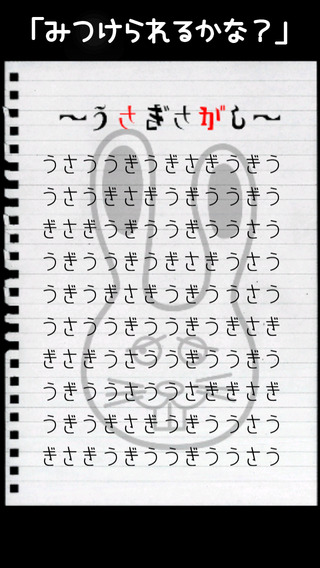 「みつけられるかな？」
～うさぎさがし～
うさううぎうぎさぎうぎう
うさうぎさぎうぎううぎう
ぎさぎうぎううぎううさう
うぎうぎううぎさぎうさう
うぎうぎさぎうぎううさう
うさううぎううぎうぎさぎ
ぎさぎうさううぎううぎう
うぎううさううさぎぎさぎ
うぎうぎさぎうぎううさう
ぎさぎうぎううぎううさう